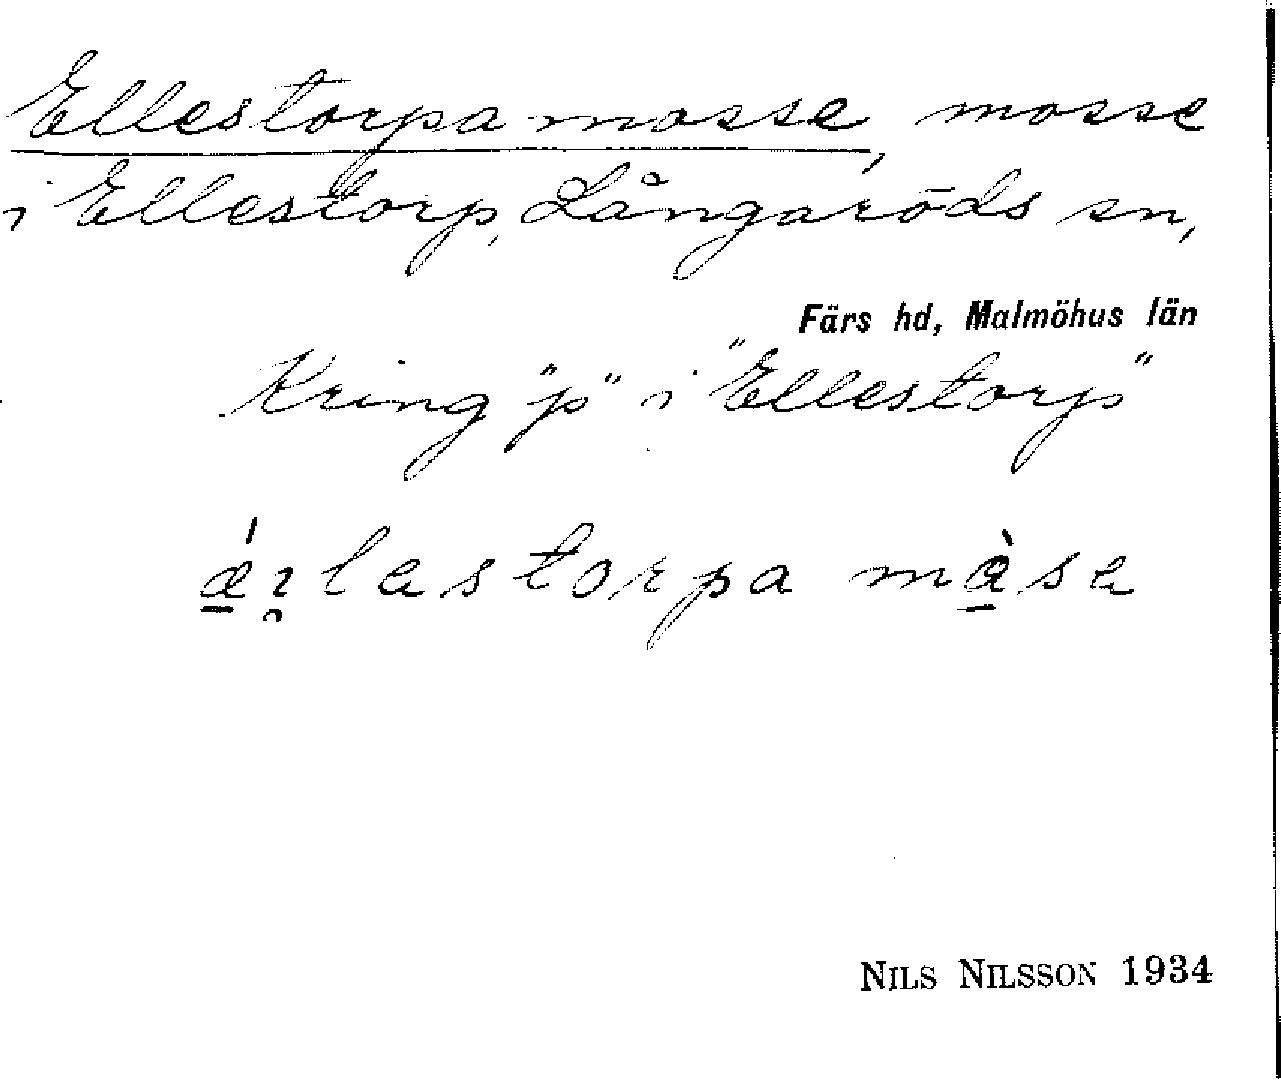 Ellestorpa mosse, mosse
i Ellestorp, Långaröds sn,
Färs hd, Malmöhus län
Kring "p" i "Ellestorp"
ǽ̱ı̯lestorpa mà̱se
NILS NILSSON 1934